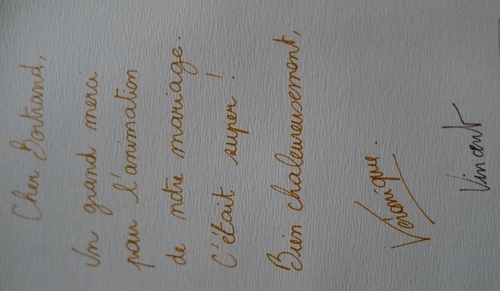 Cher Bertrand,
Un grand merci
pour l'animation
de notre mariage.
C'était super !
Bien chaleureusement,
Véronique.
Vincent